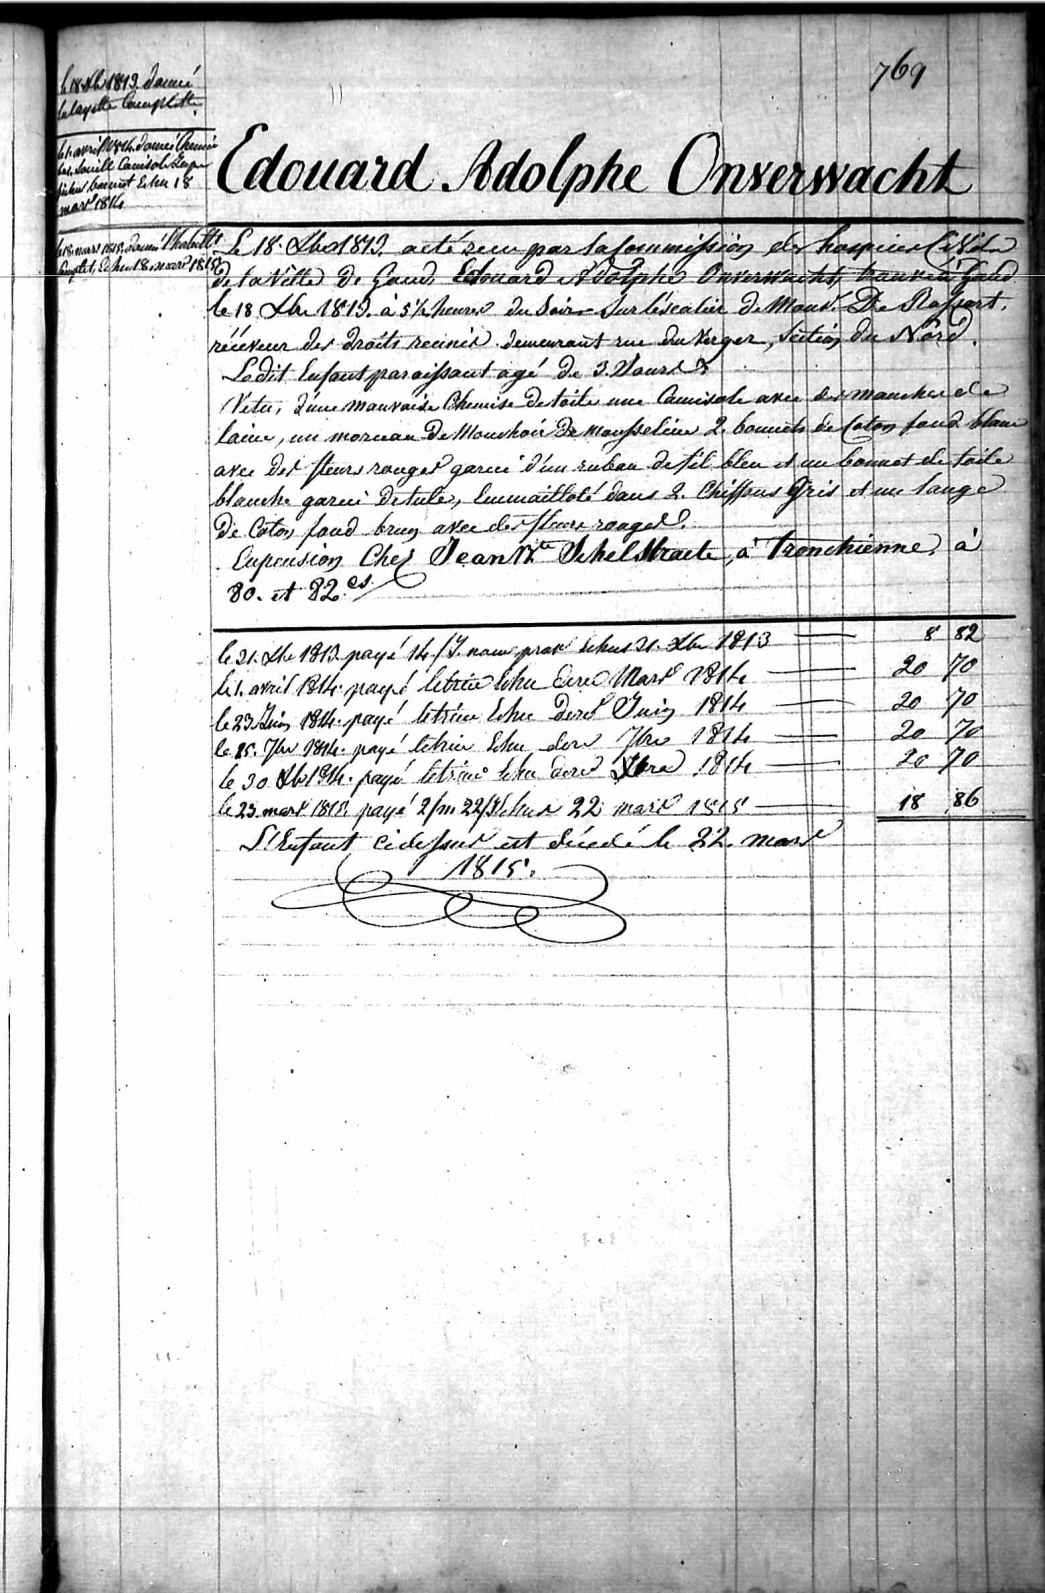 769
le 18 Xbre 1813. donné
la layette Complette.
le 1. avril 1814. donné Chemise
bas, Camisole
fichu bonnet Echu 18
mars 1814
le 18. mars 1815. donné
Complet, Echu 18. mars 1815
Edouard Adolphe Onverwacht
Le 18. Xbre 1813. a été recu par la Commission des hospices Civils de
de la Ville de Gand, Edouard Adolphe Onverwacht, trouvé à Gand
le 18 Xbre 1813. à 5 1/2 heures du Soir sur l'éscalier de Mons.r De Rassart.
réceveur des droits reunis demeurant rue du Verger, Section du Nord.
Ledit Enfant paroissant agé de 3. Jours
Vetu, d'une mauvaise Chemise de toile une Camisole avec des manches de
laine, un morceau de Mouchoir de mousseline 2. bonnets de Coton fond blanc
avec des fleurs rouges garni d'un ruban de fil bleu et un bonnet de toile
blanche garni de tule, Emmailloté dans 2. Chiffons Gris et un lange
de Coton fond brun avec des fleurs rouges.
Enpension Chez Jean Bte Schelstraete, à Tronchienne, à
80. et 82.es
le 21. Xbre 1813. payé 14/J. nour prov Echus 21. Xbre 1813 8 82
le 1. avril 1814. payé letrim Echu dere Mars 1814 20 70
le 23 Juin 1814. payé letrim Echu dere Juin 1814 20 70
le 25. 7bre 1814. payé letrim Echu dere 7bre 1814 20 70
le 30. Xbre 1814. payé letrim Echu dere Xbre 1814 20 70
le 23. mars 1815. payé 2/m 22/J Echus 22 mars 1815 18 86
L'Enfant cidessus est décedé le 22. mars
1815.